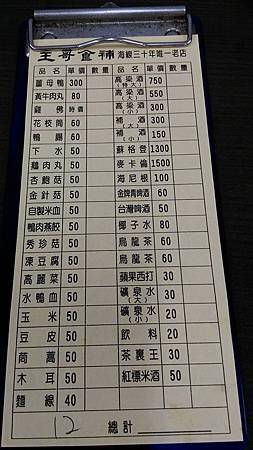 王哥食補 海線三十年唯一老店
品名 單價 數量 品名 單價 數量
薑母鴨 300 高梁酒(特大) 750
黃牛肉丸 80 高梁酒(大) 550
雞佛 時價 高梁酒(小) 300
花枝筒 60 補酒(大) 300
鴨腸 60 補酒(小) 150
下水 50 蘇格登 1300
雞肉丸 50 麥卡倫 1500
杏鮑菇 50 海尼根 100
金針菇 50 金牌青啤酒 60
自製米血 50 台灣啤酒 50
鴨肉蒸餃 50 椰子水 80
秀珍菇 50 烏龍茶 60
凍豆腐 50 烏龍茶 60
高麗菜 50 蘋果西打 30
水鴨血 50 礦泉水(大) 30
玉米 50 礦泉水(小) 20
豆皮 50 飲料 20
茼蒿 50 茶裏王 30
木耳 50 紅標米酒 50
麵線 40
12 總計